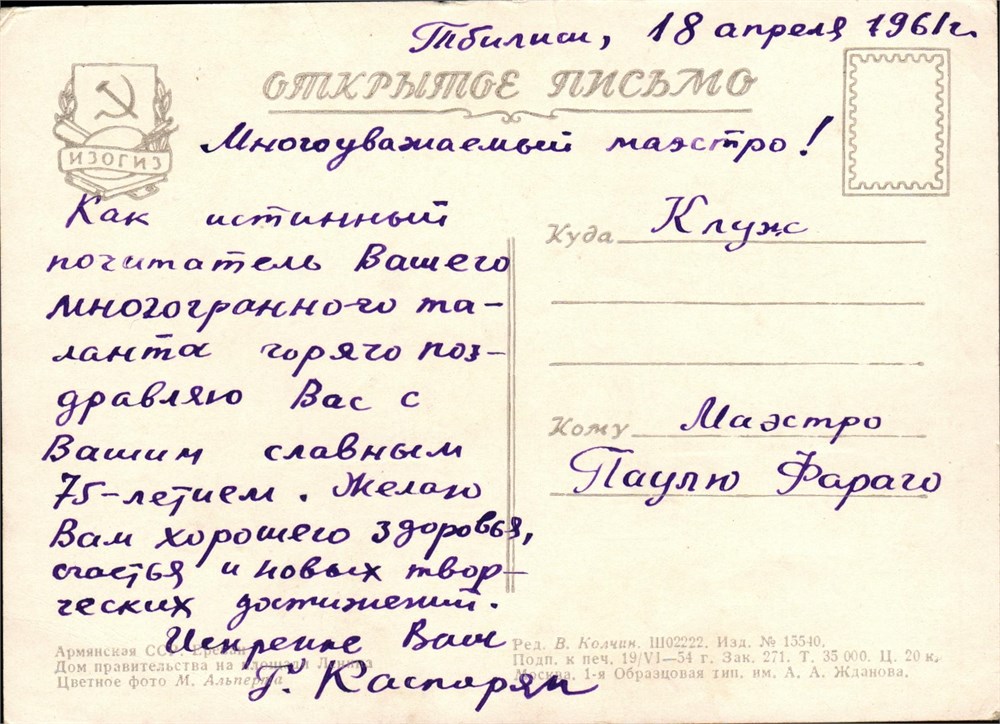 Тбилиси, 18 апреля 1961г.
ОТКРЫТОЕ ПИСЬМО
ИЗОГИЗ
Многоуважаемый маэстро!
Как истинный
почитатель Вашего
многогранного та-
ланта горячо поз-
дравляю Вас с
Вашим славным
75-летием. Желаю
Вам хорошего здоровья,
счастья и новых твор-
ческих достижений.
Искренне Ваш
Г. Каспарян
Куда Клуж
Кому Маэстро
Паулю Фараго
Армянская ССР. Ереван
Дом правительства на площади Ленина
Цветное фото М. Альперта
Ред. В. Колчин. Ш02222. Изд. № 15540.
Подп. к печ. 19/VI—54 г. Зак. 271. Т. 35 000. Ц. 20 к.
Москва, 1-я Образцовая тип. им. А. А. Жданова.